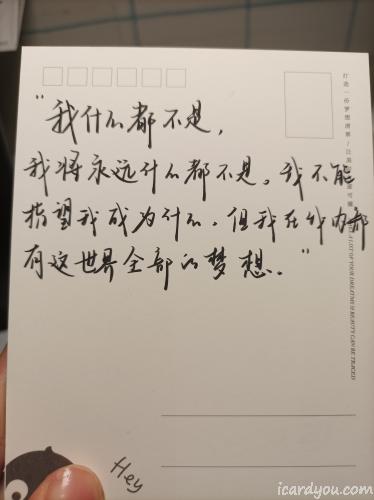 “我什么都不是，
我将永远什么都不是。我不能
指望我成为什么。但我在我内部
有这世界全部的梦想。”
Hey
icardyou.com